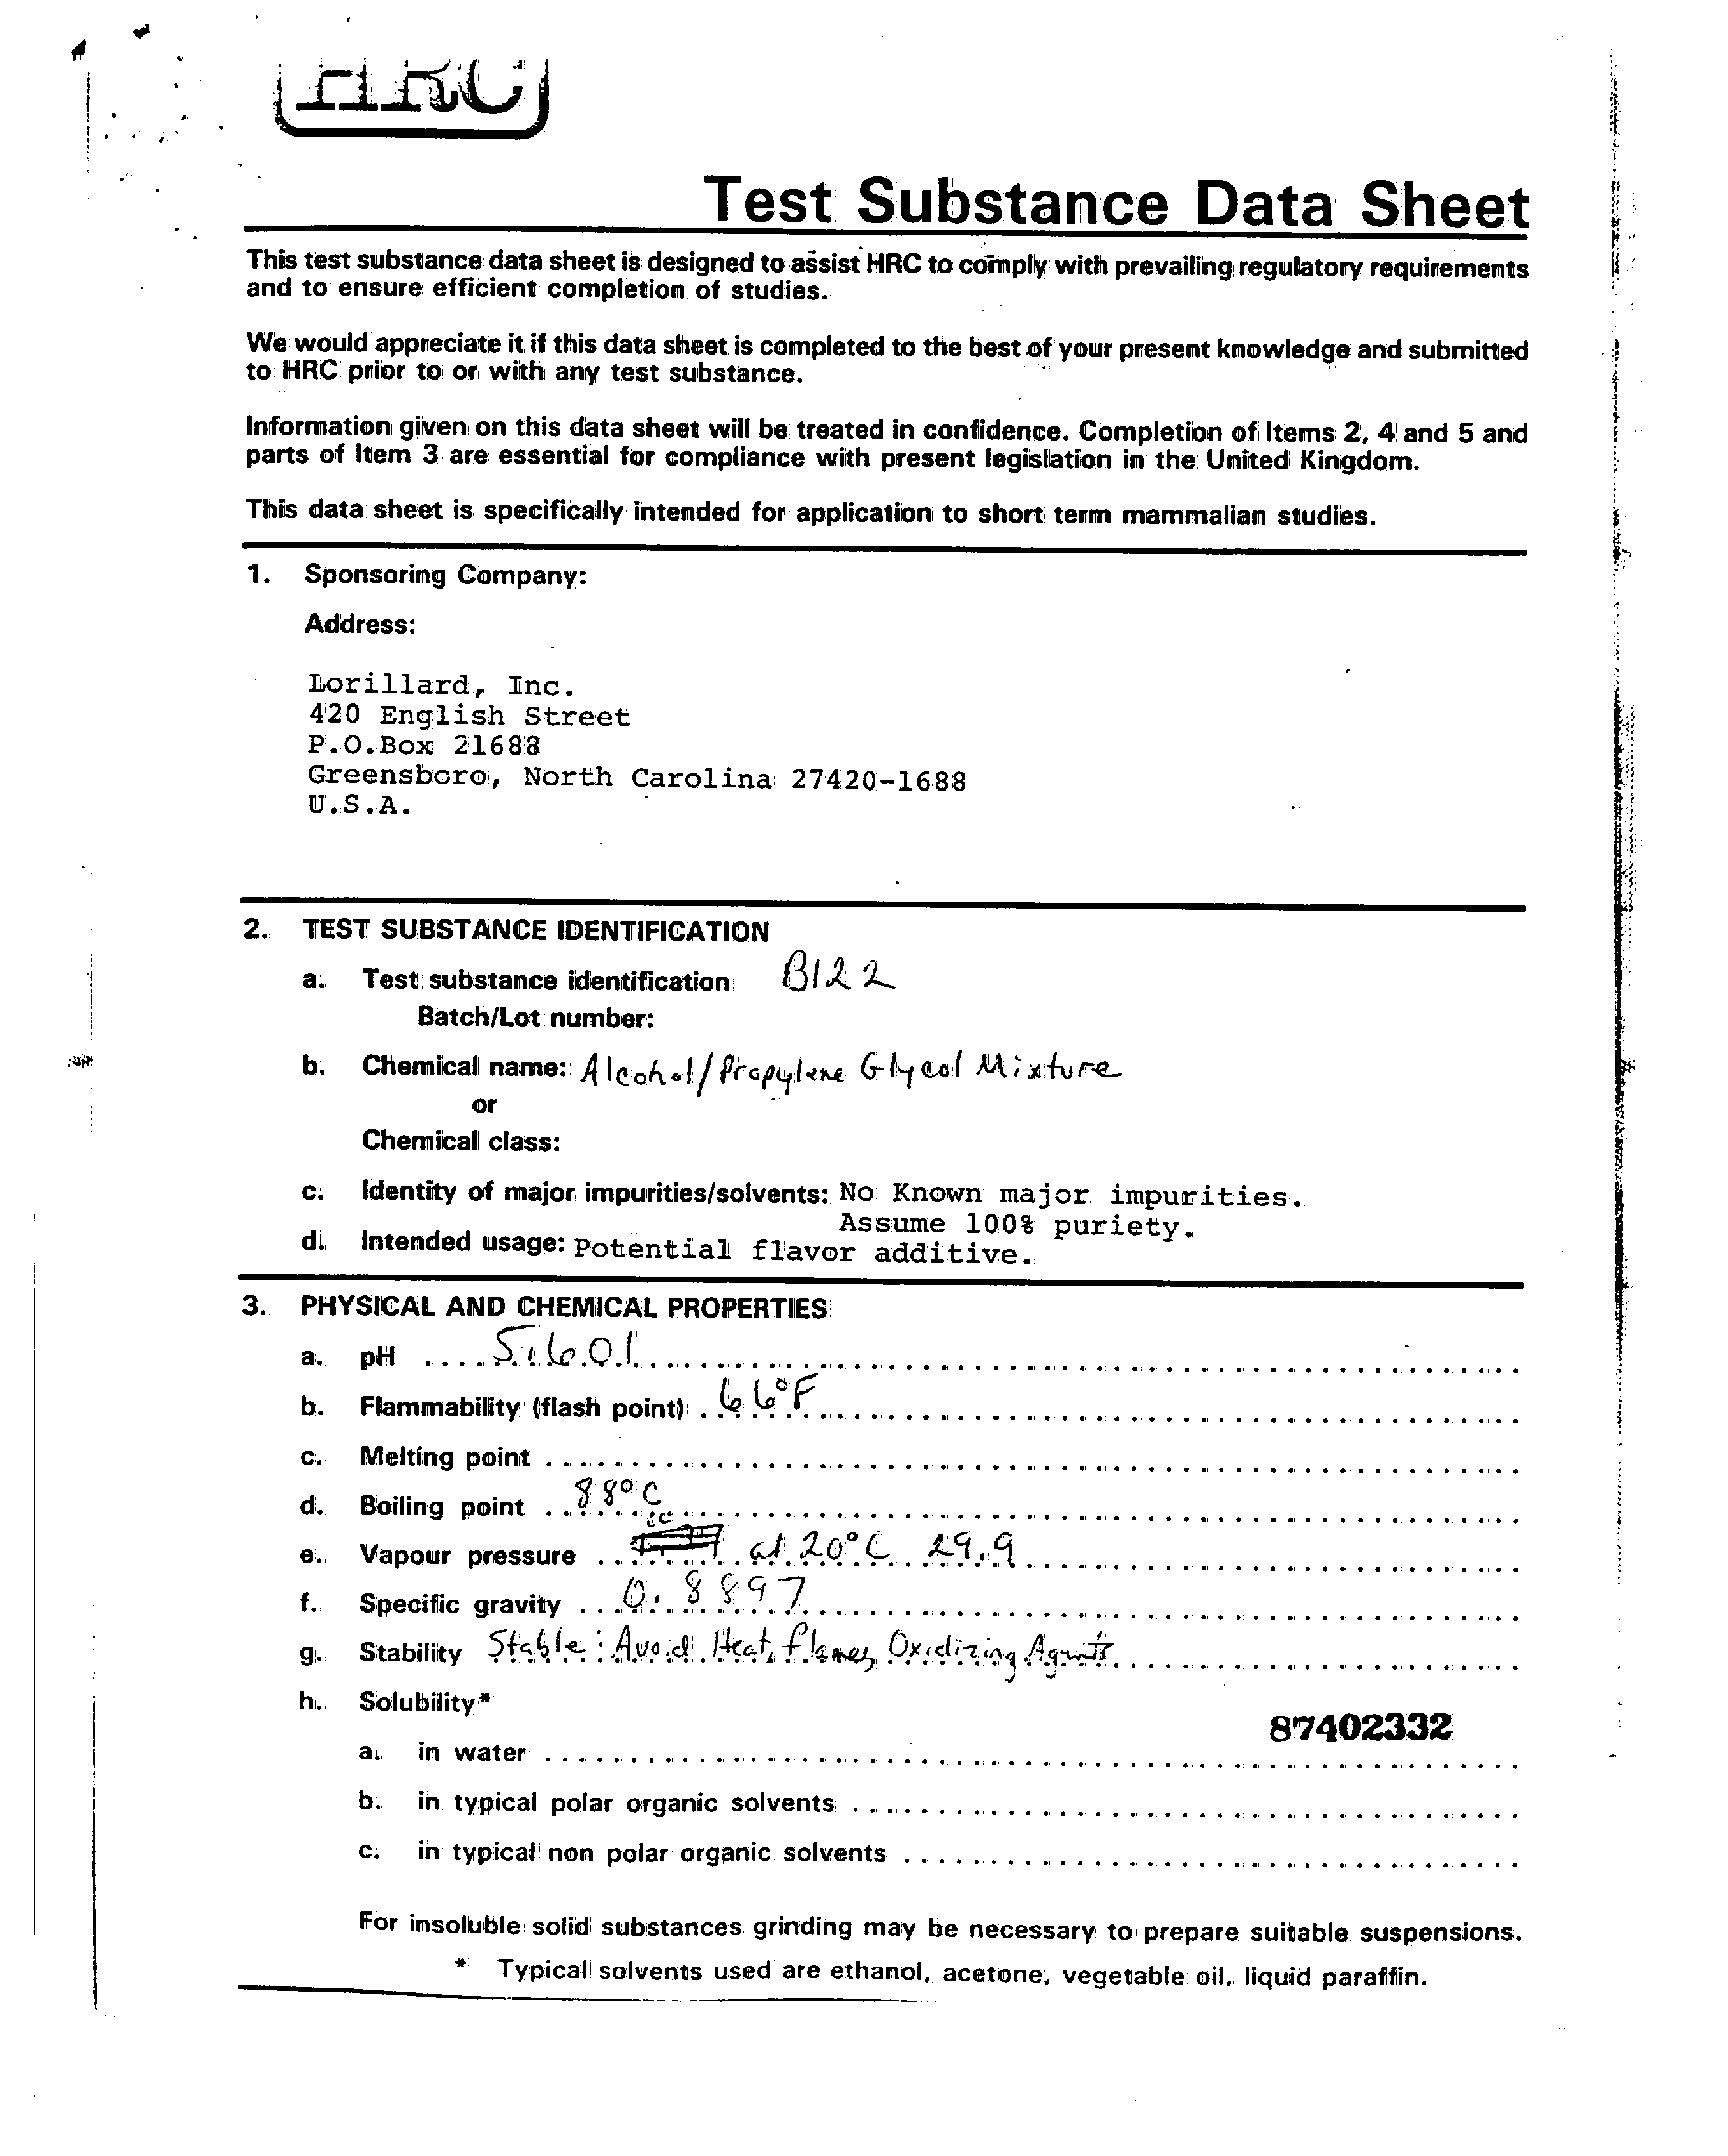 HRC
Test Substance Data Sheet
This test substance data sheet is designed to assist HRC to comply with prevailing regulatory requirements
and to ensure efficient completion of studies.
We would appreciate it if this data sheet is completed to the best of your present knowledge and submitted
to HRC prior to or with any test substance.
Information given on this data sheet will be treated in confidence. Completion of Items 2, 4 and 5 and
parts of Item 3 are essential for compliance with present legislation in the United Kingdom.
This data sheet is specifically intended for application to short term mammalian studies.
1. Sponsoring Company:
Address:
Lorillard, Inc.
420 English Street
P.O.Box 21688
Greensboro, North Carolina 27420-1688
U.S.A.
2. TEST SUBSTANCE IDENTIFICATION
a. Test substance identification B122
Batch/Lot number:
b. Chemical name: Alcohol/Propylene Glycol Mixture
or
Chemical class:
c. Identity of major impurities/solvents: No Known major impurities.
Assume 100% puriety.
d. Intended usage: Potential flavor additive.
3. PHYSICAL AND CHEMICAL PROPERTIES
a. pH .... 5.601
b. Flammability (flash point) 66°F
c. Melting point
d. Boiling point 88°C
e. Vapour pressure at 20°C 29.9
f. Specific gravity 0.8897
g. Stability Stable: Avoid Heat, flames, Oxidizing Agents
h. Solubility*
87402332
a. in water
b. in typical polar organic solvents
c. in typical non polar organic solvents
For insoluble solid substances grinding may be necessary to prepare suitable suspensions.
* Typical solvents used are ethanol, acetone, vegetable oil, liquid paraffin.